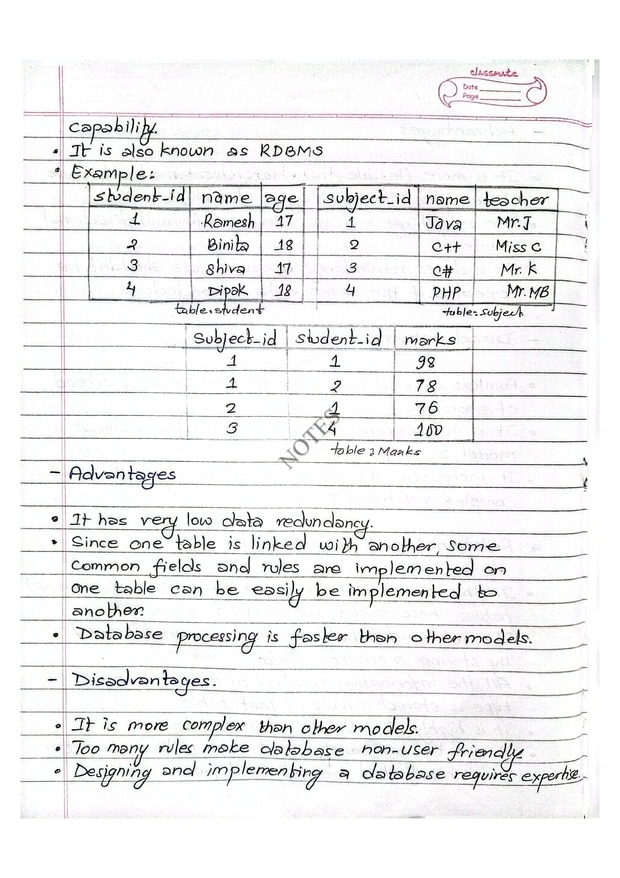 classmate
Date
Page
capability.
• It is also known as RDBMS
• Example:
student_id name age
1 Ramesh 17
2 Binita 18
3 Shiva 17
4 Dipak 18
table: student
subject_id name teacher
1 Java Mr. J
2 C++ Miss C
3 C# Mr. K
4 PHP Mr. MB
table: subject
Subject_id student_id marks
1 1 98
1 2 78
2 1 76
3 4 100
table: Marks
NOTES
- Advantages
• It has very low data redundancy.
• Since one table is linked with another, some
common fields and rules are implemented on
one table can be easily be implemented to
another.
• Database processing is faster than other models.
- Disadvantages.
• It is more complex than other models.
• Too many rules make database non-user friendly
• Designing and implementing a database requires expertise.